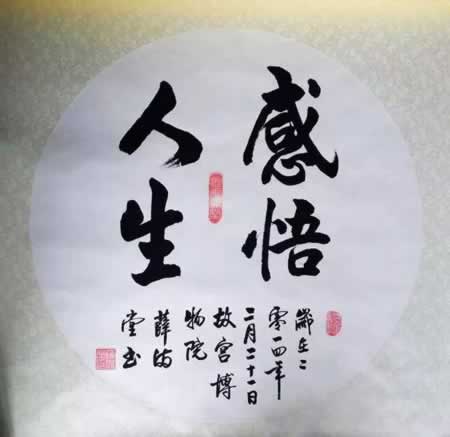 感悟
人生
歲在二
零一四年
二月二十一日
故宫博
物院
薛
堂书